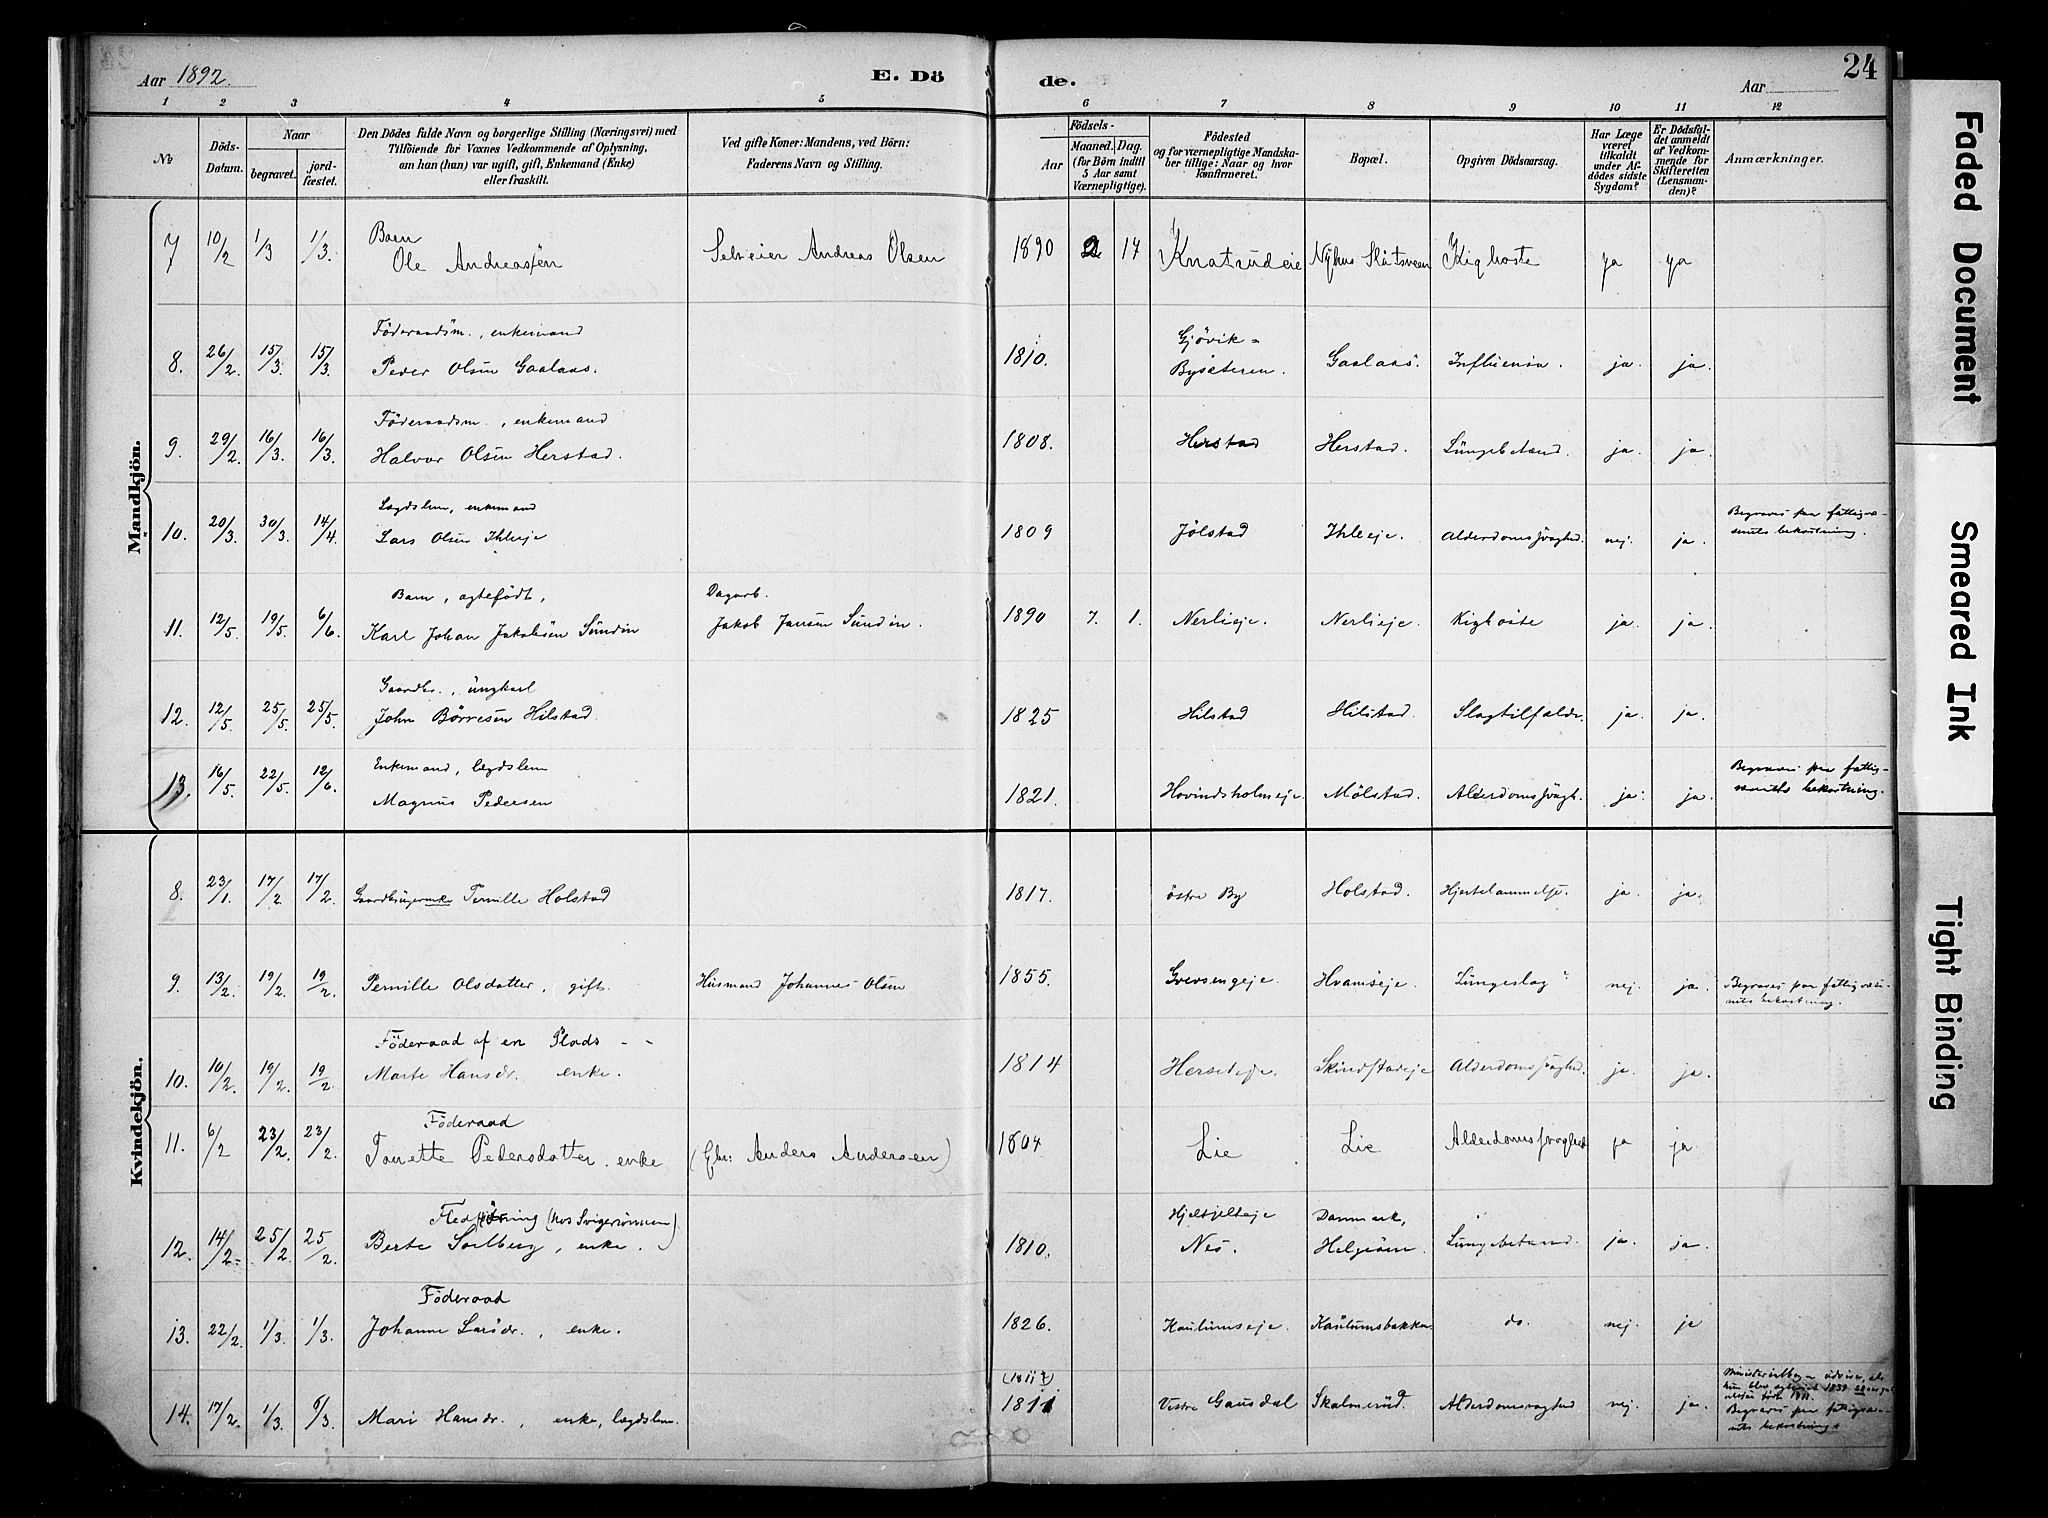 Aar 1892.
E. Dö
de.
Aar
24
1 2 3 4 5 6 7 8 9 10 11 12
No
Döds-Datum.
Naar
begravet.
jord-fæstet.
Den Dödes fulde Navn og borgerlige Stilling (Næringsvei) med
Tilföiende for Voxnes Vedkommende af Oplysning,
om han (hun) var ugift, gift, Enkemand (Enke)
eller fraskilt.
Ved gifte Koner: Mandens, ved Börn:
Faderens Navn og Stilling.
Födsels-
Aar
Maaned. Dag.
(for Börn indtil
5 Aar samt
Værnepligtige).
Födested
og for værnepligtige Mandska-
ber tillige: Naar og hvor
konfirmeret.
Bopæl.
Opgiven Dödsaarsag.
Har Læge
været
tilkaldt
under Af-
dödes sidste
Sygdom?
Er Dödsfal-
det anmeldt
af Vedkom-
mende for
Skifteretten
(Lensman-
den)?
Anmærkninger.
Mandkjön.
7 10/2 1/3 1/3. Barn
Ole Andreassen Selveier Andreas Olsen 1890 2 17 Knatrudeie Nyhus Slåtsveen Kighoste ja ja
8. 26/2. 15/3. 15/3. Föderaadsm., enkemand
Peder Olsen Gaalaas. 1810. Gjövik =
Bysæteren. Gaalaas. Influensa. ja. ja.
9. 29/2. 16/3. 16/3. Föderaadsm., enkemand
Halvor Olsen Herstad. 1808. Herstad Herstad. Lungebetænd. ja. ja.
10. 20/3. 30/3. 14/4. Lægdslem, enkemand
Lars Olsen Ihleeje 1809 Jølstad Ihleeje. Alderdomssvaghed. nej. ja. Begraves paa fattigvæ-
senets bekostning.
11. 12/5. 19/5. 6/6. Barn, ægtefödt,
Karl Johan Jakobsen Sundin Dagarb.
Jakob Jansen Sundin. 1890 7. 1. Nerlieje. Nerlieje. Kighoste ja. ja.
12. 12/5. 25/5. 25/5. Gaardbr., ungkarl
John Börresen Hilstad. 1825 Hilstad Hilstad. Slagtilfælde. ja. ja.
13. 16/5. 22/5. 12/6. Enkemand, lægdslem
Magnus Pedersen 1821. Hovindsholmeje. Mölstad. Alderdomssvagh. ja. ja. Begraves paa fattig-
væsenets bekostning.
Kvindekjön.
8. 23/1. 17/2 17/2. Gaardbrugerenke Pernille Holstad 1817. östre By Holstad. Hjertelammelse. ja. ja.
9. 13/2. 19/2. 19/2. Pernille Olsdatter, gift. Husmand Johannes Olsen 1855. Grevsengeje. Hvamseje. Lungeslag nej. ja. Begraves paa fattigvæse-
nets bekostning.
10. 10/2. 19/2. 19/2. Föderaad af en Plads - -
Marte Hansdr. enke. 1814 Hersedeje. Skindstadeje Alderdomssvaghed. ja. ja.
11. 6/2 23/2. 23/2. Föderaad
Tonette Pedersdatter. enke (Gbr: Anders Andersen) 1804 Lie Lie Alderdomssvaghed ja ja
12. 14/2- 25/2 25/2. (hos Svigersönnen)
Berte Solberg, enke. 1810. Nes. Danmark,
Helgöen. Lungebetænd. ja. ja.
13. 22/2. 1/3. 1/3. Föderaad
Johanne Larsdr., enke. 1826. Kaulumseje. Kaulumsbakken do. nej. ja
14. 17/2. 1/3. 6/3. Mari Hansdr., enke, lægdslem. (1811?)
1811 Vestre Gausdal Skalmerud. Alderdomsvaghed nej. ja.
Begraves paa fattigvæse-
nets bekostning.
Faded Document
Smeared Ink
Tight Binding